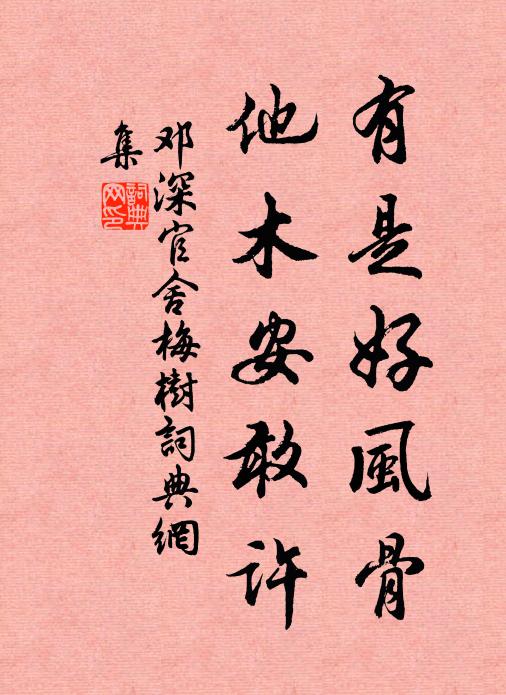 有是好風骨
他木安敢許
邓深官舍梅樹詞典網
集
詞典
网印